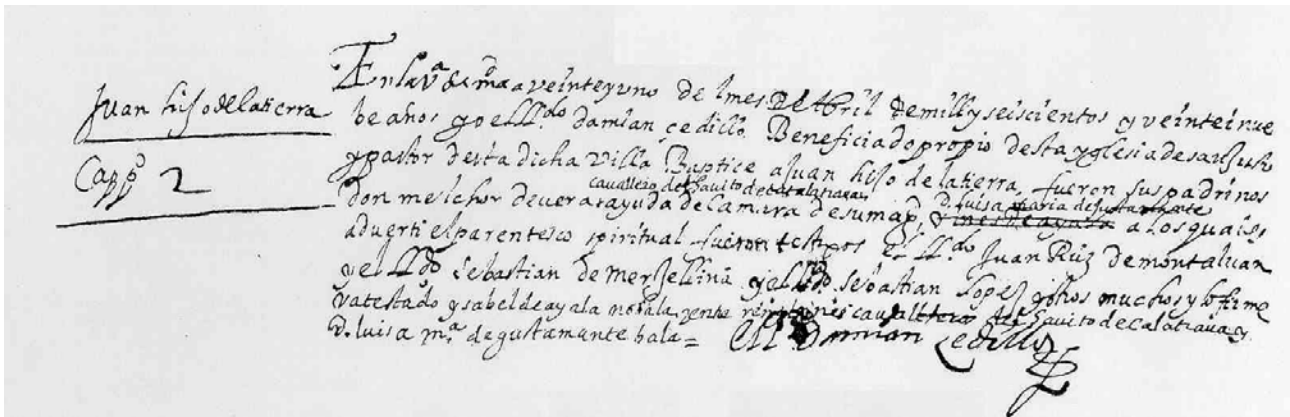 Juan hijo de la tierra
Capp.º 2
En la Vª de mᵈ a veinte y uno de l mes de Abril de mill y seiscientos y veinte i nue
be años yo el ll.ᵈᵒ damian cedillo Beneficiado propio desta yglesia de san Justo
y pastor desta dicha Villa Baptice a Juan hijo de la tierra, fueron sus padrinos
cavallero del havito de calatrava
d. luisa maria de
don melchor de vera ayuda de Camara de su magᵈ, y ines de ayala a los quales
adverti el parentesco spiritual fueron testigos el ll.ᵈᵒ Juan Ruiz de montalvan
y el lldo sebastian de y el lldo. sebastian lopez y otros muchos y lo firme
va testado ysabel de ayala no vala, y entre renglones cavallero del havito de Calatrava y
D. luisa mª de gustamante bala = El ll.ᵈᵒ Damian Cedillo